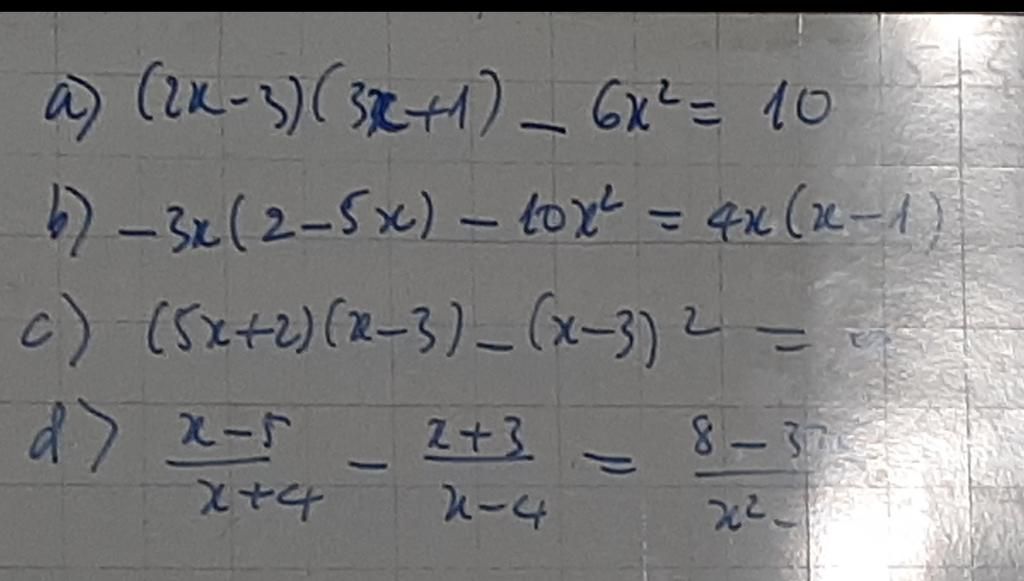 a) (2x-3)(3x+1) - 6x² = 10
b) -3x(2-5x) - 10x² = 4x(x-1)
c) (5x+2)(x-3) - (x-3)² =
d) \frac{x-5}{x+4} - \frac{x+3}{x-4} = \frac{8-3}{x²-}